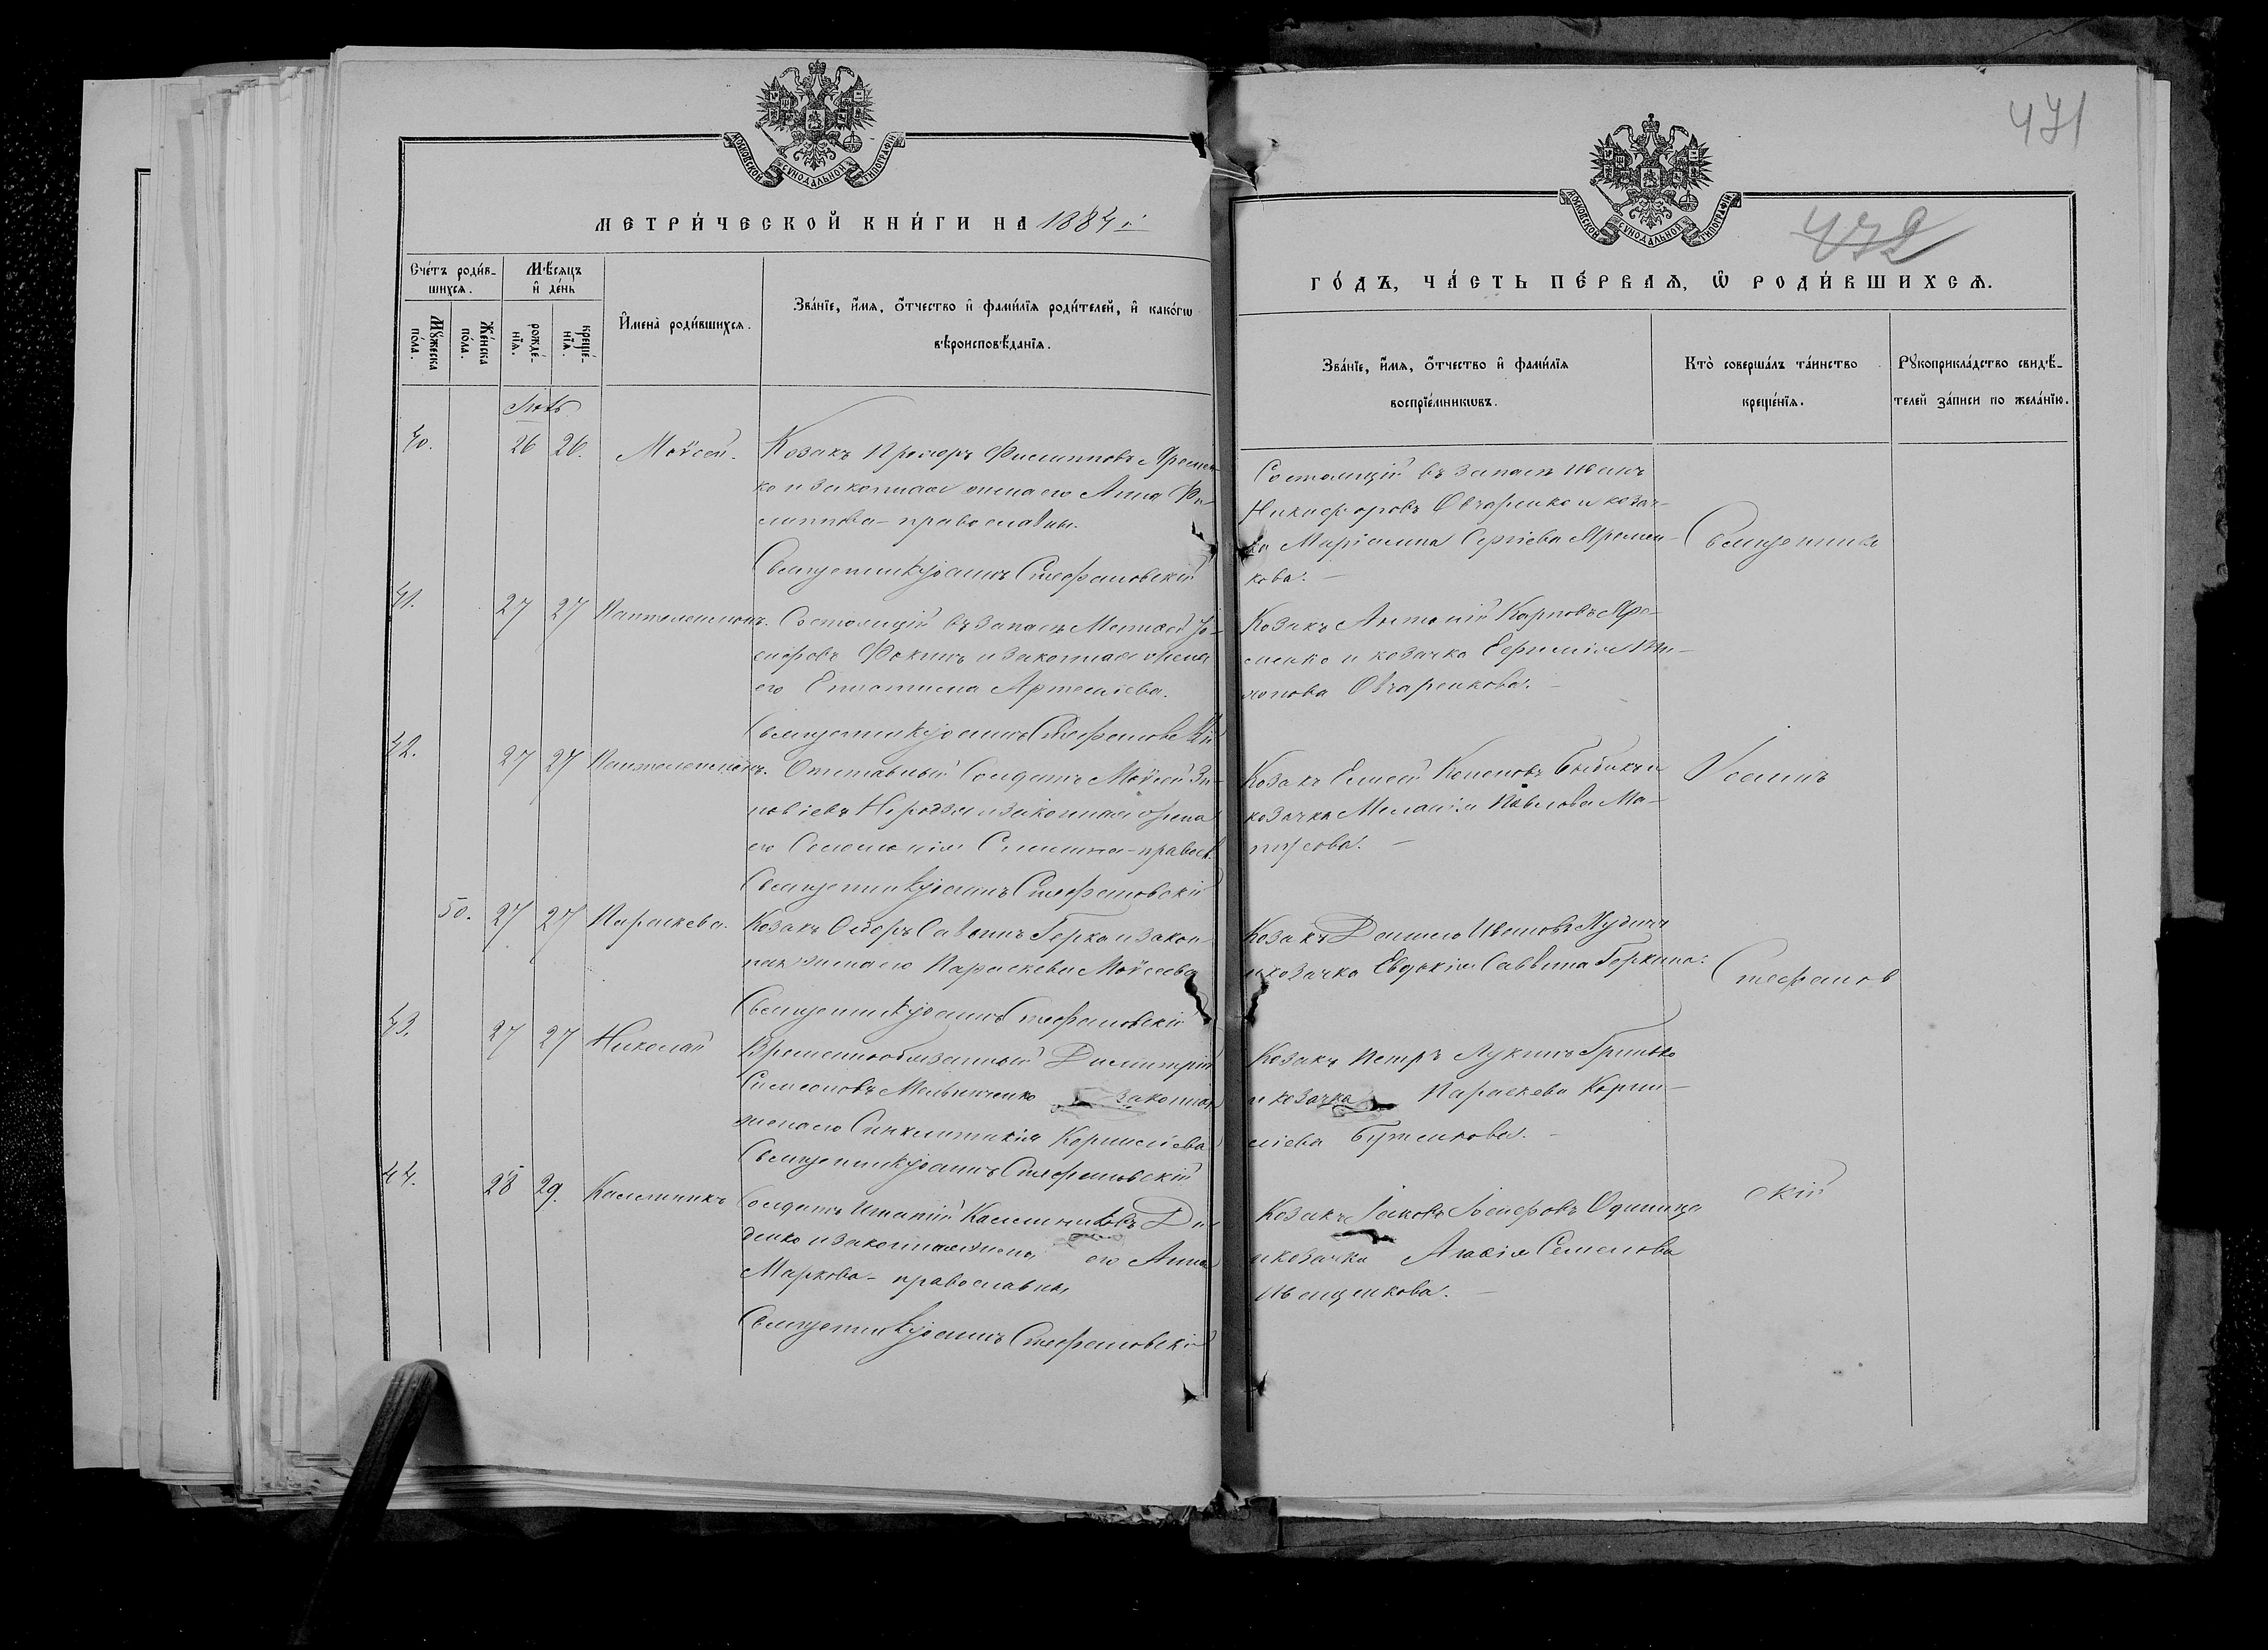 471
472
МОСКОВСКОЙ СѴНОДАЛЬНОЙ ТИПОГРАФІИ
МЕТРИ́ЧЕСКОЙ КНИ́ГИ НА 1884 г.
Сче́тъ роди́в-
шихсѧ.
Мꙋ́жеска
по́ла.
Же́нска
по́ла.
Мѣ́сѧцъ
и҆ де́нь
рожде́-
нїѧ.
креще́-
нїѧ.
И҆мена̀ роди́вшихсѧ.
Зва́нїе, и҆́мѧ, ѻ҆́тчество и҆ фами́лїѧ роди́телей, и҆ како́гѡ
вѣроисповѣ́данїѧ.
Іюль
40. 26 26. Моѵсей. Козакъ Прохоръ Филипповъ Яремен-
ко и законная жена его Анна Фи-
липпова - православны.
Священникъ Іоаннъ Стефановскій
41. 27 27 Пантелеимонъ. Состоящій въ запасѣ
Фокинъ и законная жена
его Епистимія Артемьева.
Священникъ Іоаннъ Стефановскій
42. 27 27 Пантелеимонъ. Отставный Солдатъ Моѵсей Зи-
новіевъ и законная жена
его Соломонія православ.
Священникъ Іоаннъ Стефановскій
50. 27 27 Параскева. Козакъ Ѳедоръ Саввинъ Горка и закон-
ная жена его Параскева Моѵсеева
Священникъ Іоаннъ Стефановскій
43. 27 27 Николай Временнообязанный Димитрій
Симеоновъ Мельниченко законная
жена его Синклитикія Корнилиева
Священникъ Іоаннъ Стефановскій
44. 28 29. Каллиникъ Солдатъ Игнатій Каллиниковъ Ди-
денко и законная жена его Анна
Маркова - православны
Священникъ Іоаннъ Стефановскій
МОСКОВСКОЙ СѴНОДАЛЬНОЙ ТИПОГРАФІИ
ГО́ДЪ, ЧА́СТЬ ПЕ́РВАѦ, Ѽ РОДИ́ВШИХСѦ.
Зва́нїе, и҆́мѧ, ѻ҆́тчество и҆ фами́лїѧ
воспрїе́мникѡвъ.
Кто̀ соверша́лъ та́инство
креще́нїѧ.
Рꙋкоприкла́дство свидѣ́-
телей за́писи по жела́нїю.
Состоящій въ запасѣ Иванъ
Никифоровъ Овчаренко и козач-
ка Маріанна Сергіева Яремен-
кова. -
Козакъ Антоній Карповъ Яре-
менко и козачка Евфимія Ти-
хонова Овчаренкова. -
Козакъ Елисей Кононовъ Бибикъ и
козачка Меланія Павлова Ма-
тусова. -
Козакъ Даніилъ Ивановъ Кудинъ
и козачка Евдокія Саввина Горкина.
Козакъ Петръ Лукинъ Гринько
и козачка Параскева Корни-
лиева Бутенкова. -
Козакъ Іаковъ Іосифовъ Одиница
и козачка Агафія Семенова
Ивщенкова. -
Священникъ
Іоаннъ
Стефанов
скій